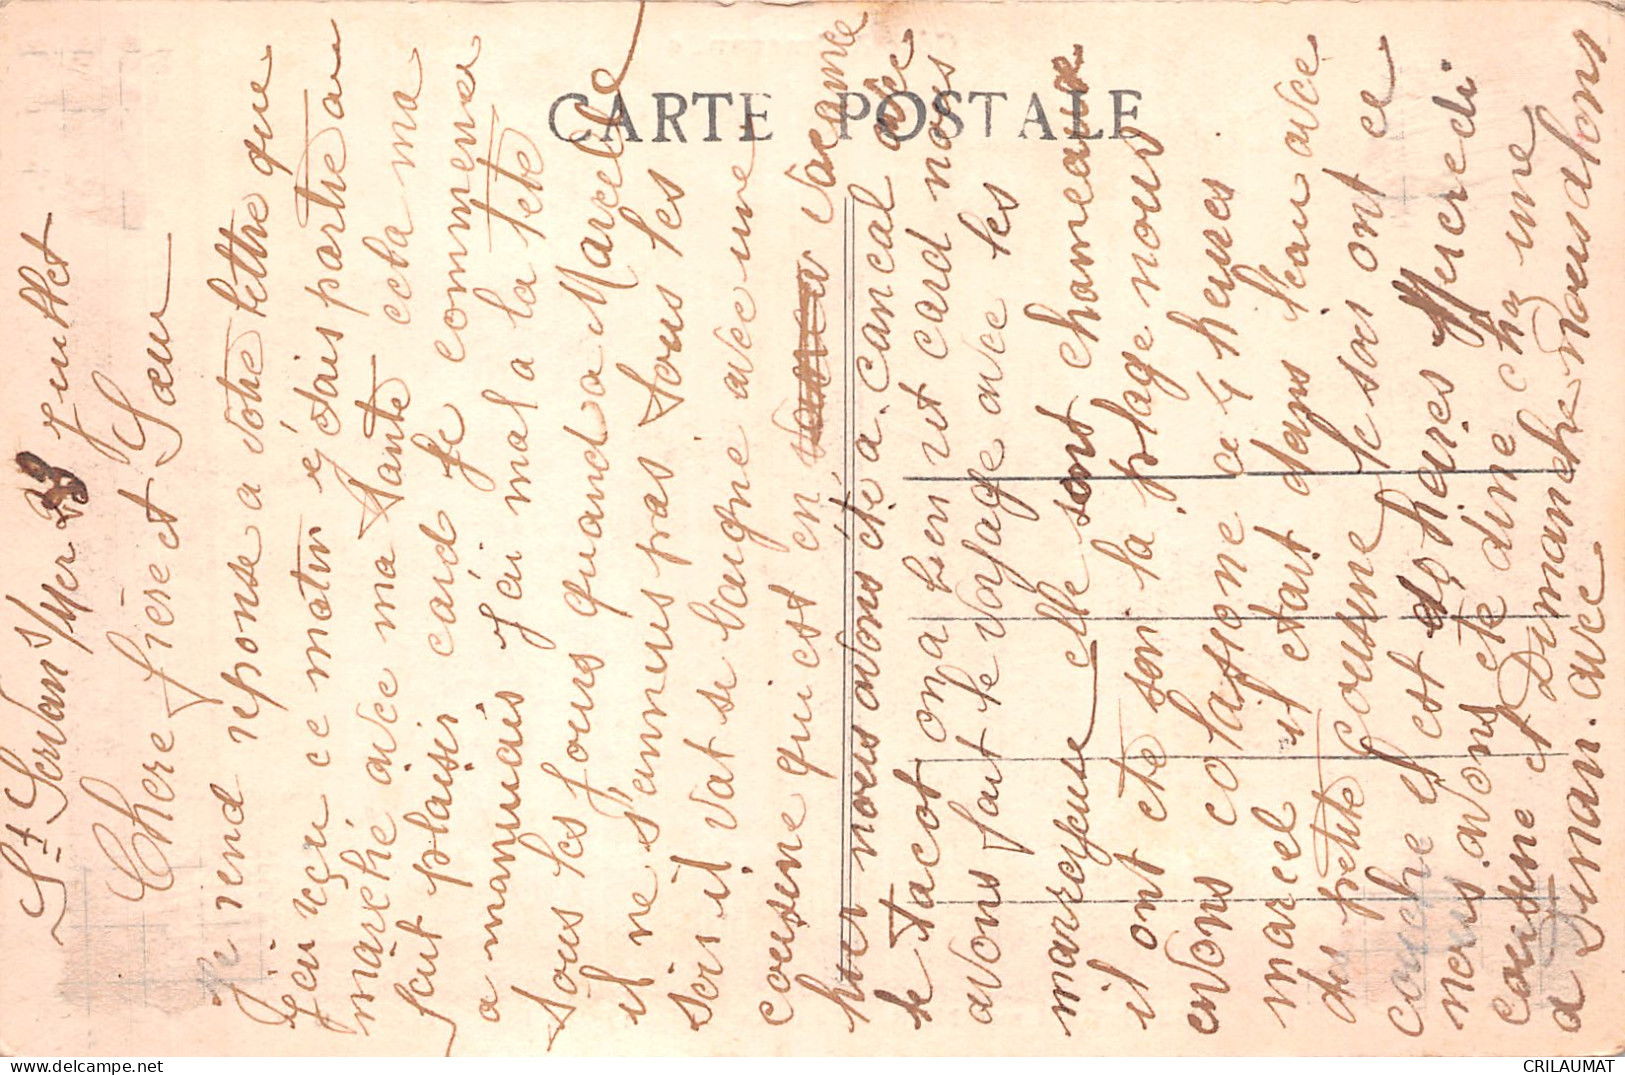 CARTE POSTALE
St Servan s/Mer 23 Juillet
Chere frère et Sœur
Je rend réponse a votre lettre que
j'ai reçu ce matin j'étais partie au
marché avec ma tante ceeba ma
fait plaisir card je commence
a mannuais j'ai mal a la tete
tous les jours quand a Marcelle
il ne s'annuis pas tous les
soirs il vat se baigne avec une
cousine qui est en vacance
hier nous avons été a cancal avec
le Tacot on a bien ut card nous
avons fait le voyage avec les
marreyeuse elle sont chameaux
il ont ete son la plage nous
avons colassone a 4 heures
marcel ut etait dans l'eau avec
des petite Cousine le soir ont ce
couche il est dix heures Mercredi
nous avons ete dine chez une
cousine et Dimanche nous alons
a Dinan. avec
CRILAUMAT